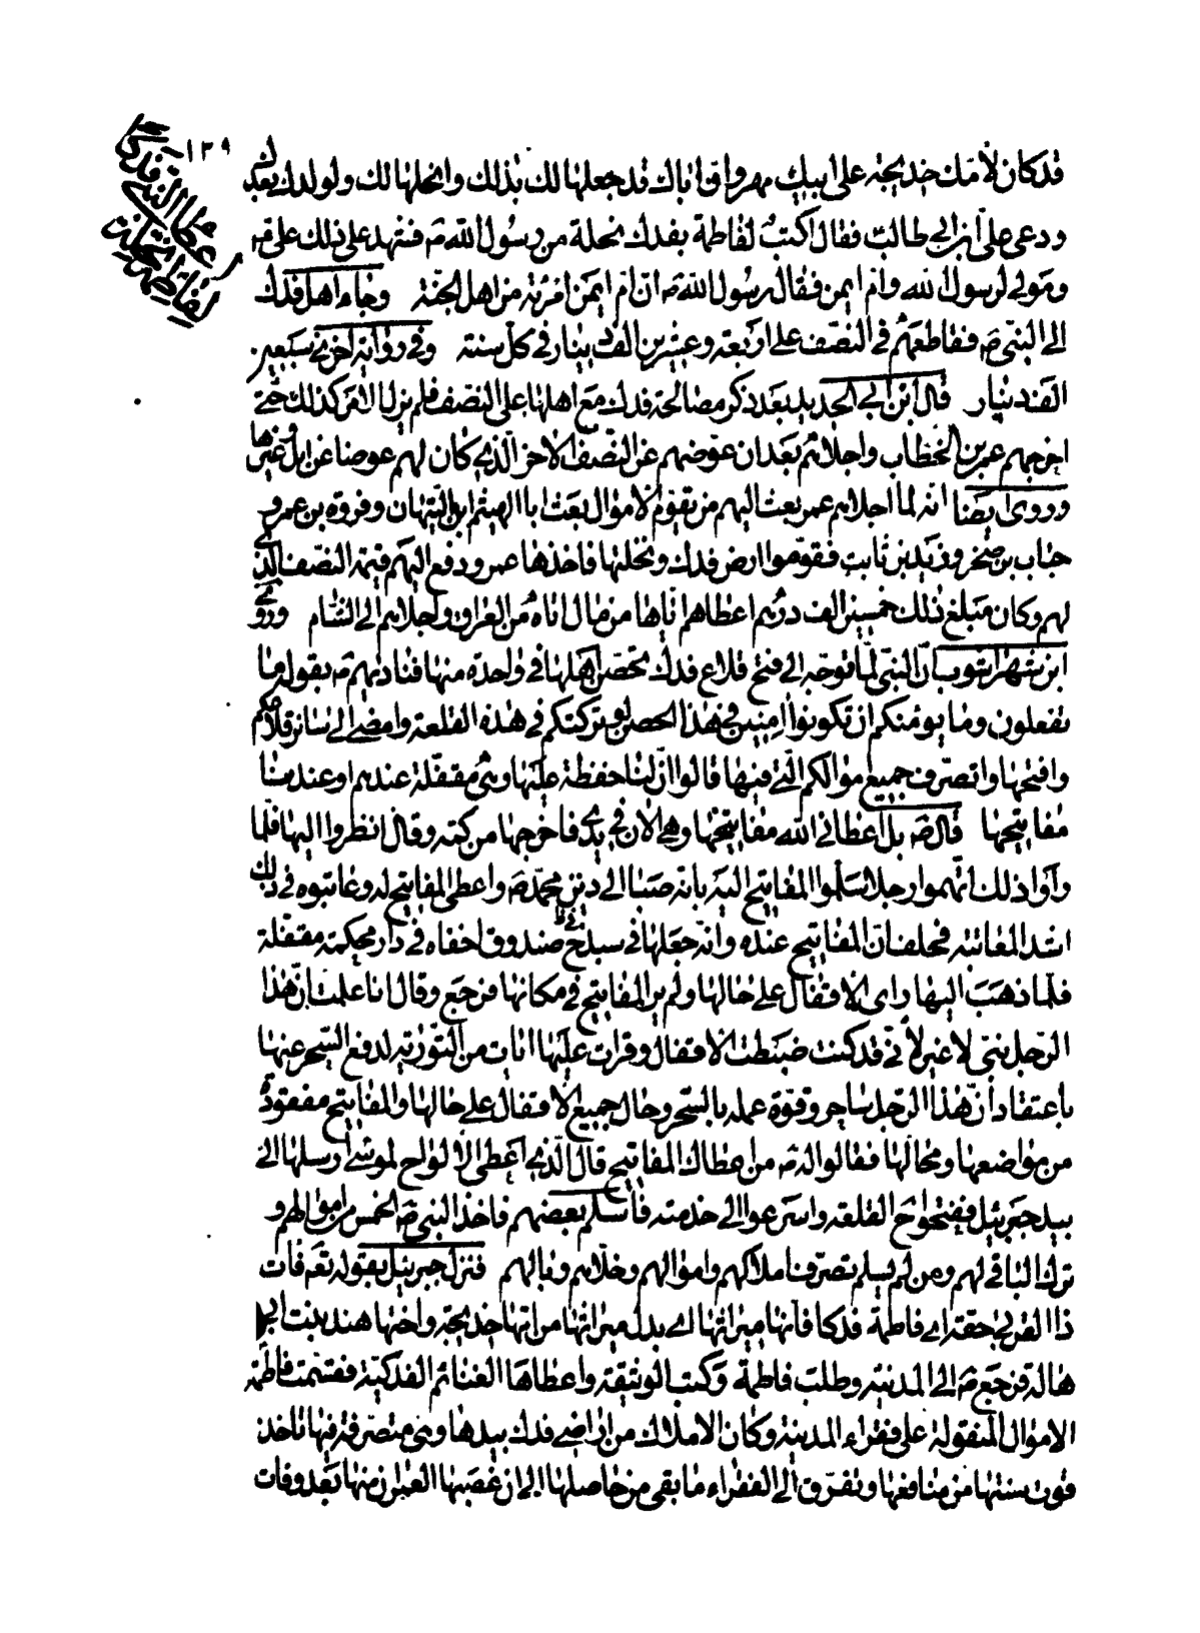 ١٢٩
اعطاء النبي فدكا
لفاطمة
قد كان لأمك خديجة على ابيك مهر وان اباك قد جعلها لك بذلك وانحلها لك ولولدك بعدك
ودعى علي ابن ابي طالب فقال اكتب لفاطمة بفدك نحلة من رسول الله ص فشهد على ذلك علي ع
ومولى لرسول الله وام ايمن فقال رسول الله ص ان ام ايمن امرئة من اهل الجنة وجاء اهل فدك
الى النبي ص فقاطعهم في النصف على اربعة وعشرين الف دينار في كل سنة وفي رواية اخرى سبعين
الف دينار قال ابن ابي الحديد بعد ذكر مصالحة فدك مع اهلها على النصف فلم يزل الامر كذلك حتى
اخرجهم عمر بن الخطاب واجلاهم بعد ان عوضهم عن النصف الاخر الذي كان لهم عوضا عن ابل وغيرها
وروى ايضا انه لما اجلاهم عمر بعث اليهم من يقوم الاموال بعث ابا الهيثم ابن التيهان وفروة بن عمرو
حباب بن صخر وزيد بن ثابت فقوموا ارض فدك ونخلها فاخذها عمر ودفع اليهم قيمة النصف الذي
لهم وكان مبلغ ذلك خمسين الف درهم اعطاهم اياها من مال اتاه من العراق واجلاهم الى الشام وروى
ابن شهراشوب ان النبي لما توجه الى فتح قلاع فدك تحصن اهلها في واحدة منها فناديهم ص بقوله ما
تفعلون وما يؤمنكم ان تكونوا امنين في هذا الحصن لو تركتكم في هذه القلعة وامضي الى سائر قلاعكم
وافتحها واتصرف جميع اموالكم التي فيها قالوا ان لنا حفظة عليها وهي مقفلة عندهم وعندنا
مفاتيحها قال ص بل اعطاني الله مفاتيحها وهي الان في يدي فاخرجها من كمه وقال انظروا اليها فلما
راوا ذلك اتهموا رجلا سلموا المفاتيح اليه بانه صبا الى دين محمد ص واعطى المفاتيح له وعاتبوه في ذلك
اشد المعاتبة فحلف ان المفاتيح عنده وانه جعلها في صندوق اخفاه في دار محكمة مقفلة
فلما ذهب اليها راى الاقفال على حالها ولم ير المفاتيح في مكانها فرجع وقال انا علمت ان هذا
الرجل نبي لا غير لأني قد كنت ضبطت الاقفال وقرات عليها ايات من التورية لدفع السحر عنها
باعتقاد ان هذا الرجل ساحر وقوة عمله بالسحر وحال جميع الاقفال على حالها والمفاتيح مفقودة
من مواضعها ومحالها فقالوا له ص من اعطاك المفاتيح قال الذي اعطى الالواح لموسى ارسلها الي
بيد جبرئيل ففتحوا القلعة واسرعوا الى خدمته فاسلم بعضهم فاخذ النبي ص الخمس من اموالهم و
ترك الباقي لهم ومن لم يسلم تصرف املاكهم واموالهم وخلاهم وبالهم فنزل جبرئيل بقوله تع فات
ذا القربى حقه اي فاطمة فدكا فانها ميراثها اي بدل ميراثها من امها خديجة واختها هند بنت ابي
هالة فرجع ص الى المدينة وطلب فاطمة وكتب الوثيقة واعطاها الغنائم الفدكية فقسمت فاطمة
الاموال المنقولة على فقراء المدينة وكان الاملاك من اراضي فدك بيدها وهي متصرفة فيها تاخذ
قوت سنتها من منافعها وتفرق الى الفقراء ما بقي من حاصلها الى ان غصبها العمران منها بعد وفات